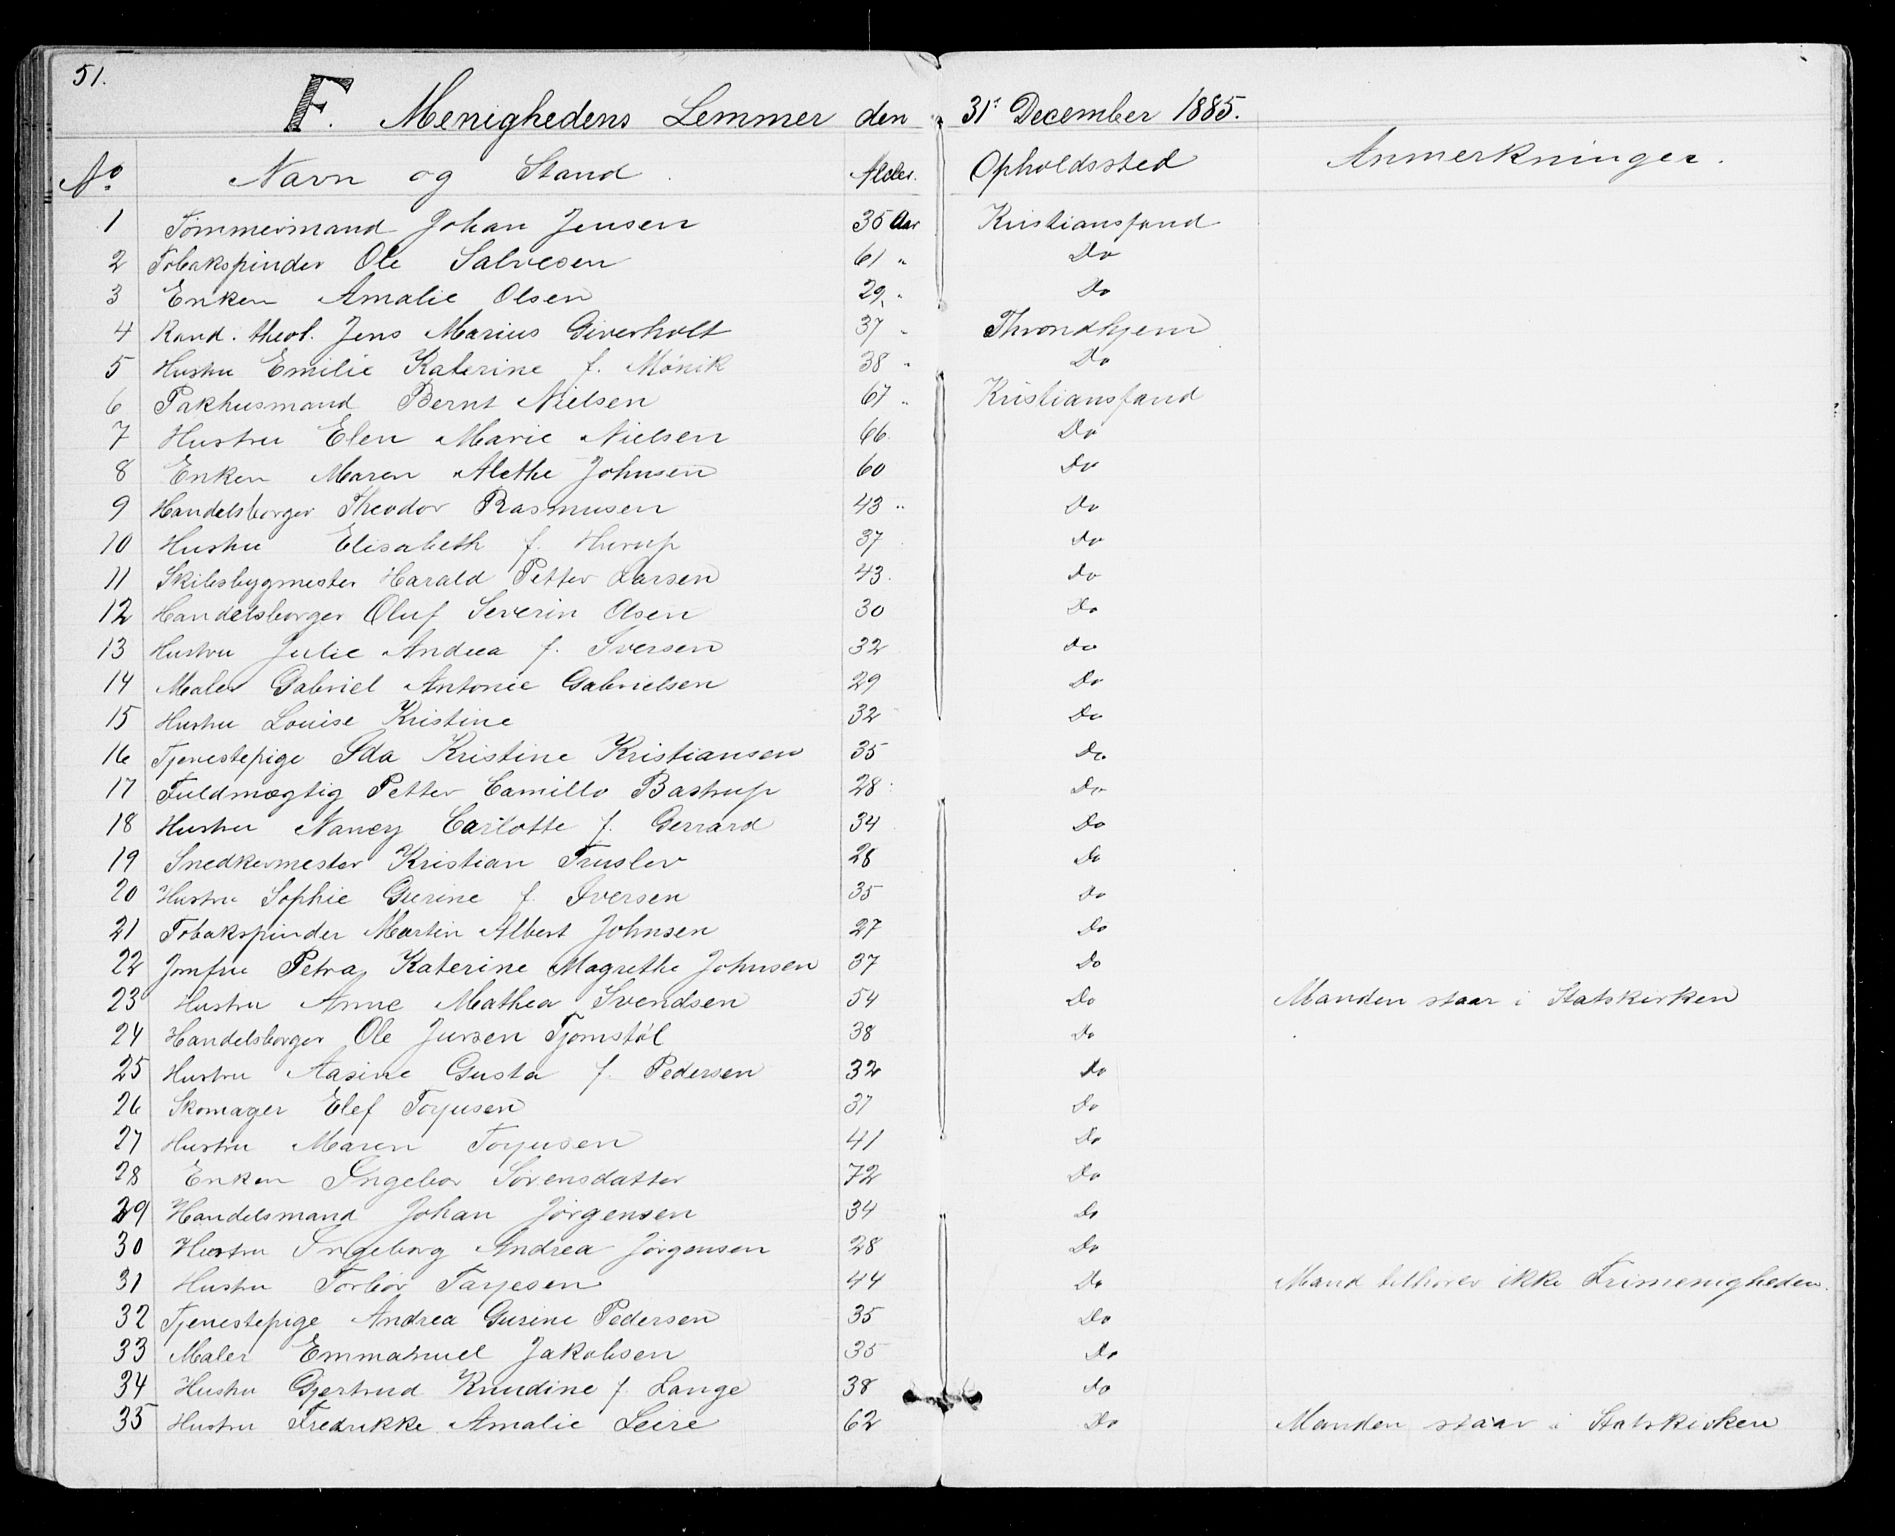 51.
F. Menighedens Lemmer den 31' December 1885.
No Navn og Stand. Alder. Opholdssted Anmerkninger.
1 Tømmermand Johan Jensen 35 Aar Kristianssand
2 Tobakspinder Ole Salvesen 61 " Do
3 Enken Amalie Olsen 29 " Do
4 Kand. theol. Jens Marius Giverholt 37 " Throndhjem
5 Hustru Emilie Katerine f. Mønik 38 " Do
6 Pakhusmand Bernt Nielsen 67 " Kristianssand
7 Hustru Elen Marie Nielsen 66 Do
8 Enken Maren Alethe Johnsen 60 Do
9 Handelsborger Theodor Rasmusen 43 " Do
10 Hustru Elisabeth f. Hurup 37 Do
11 Skibsbygmester Harald Petter Larsen 43 Do
12 Handelsborger Oluf Severin Olsen 30 Do
13 Hustru Julie Andrea f. Iversen 32 Do
14 Maler Gabriel Antonie Gabrielsen 29 Do
15 Hustru Louise Kristine 32 Do
16 Tjenestepige Ida Kristine Kristiansen 35 Do
17 Fuldmægtig Petter Camillo Bastrup 28 Do
18 Hustru Nancy Carlotte f. Gerrard 34 Do
19 Snedkermester Kristian Truslev 28 Do
20 Hustru Sophie Gurine f. Iversen 35 Do
21 Tobakspinder Martin Albert Johnsen 27 Do
22 Jomfru Petra Katerine Magrethe Johnsen 37 Do
23 Hustru Anne Mathea Svendsen 54 Do Manden staar i Statskirken
24 Handelsborger Ole Jensen Tjomstøl 38 Do
25 Hustru Aasine Gusta f. Pedersen 32 Do
26 Skomager Elef Torjusen 37 Do
27 Hustru Maren Torjusen 41 Do
28 Enken Ingebor Sørensdatter 72 Do
29 Handelsmand Johan Jørgensen 34 Do
30 Hustru Ingeborg Andrea Jørgensen 28 Do
31 Hustru Torbør Tarjesen 44 Do Mand tilhører ikke Frimenigheden.
32 Tjenestepige Andrea Gurine Pedersen 35 Do
33 Maler Emmanuel Jakobsen 35 Do
34 Hustru Gjertrud Knudine f. Lange 38 Do
35 Hustru Fredrikke Amalie Leire 62 Do Manden staar i Statskirken